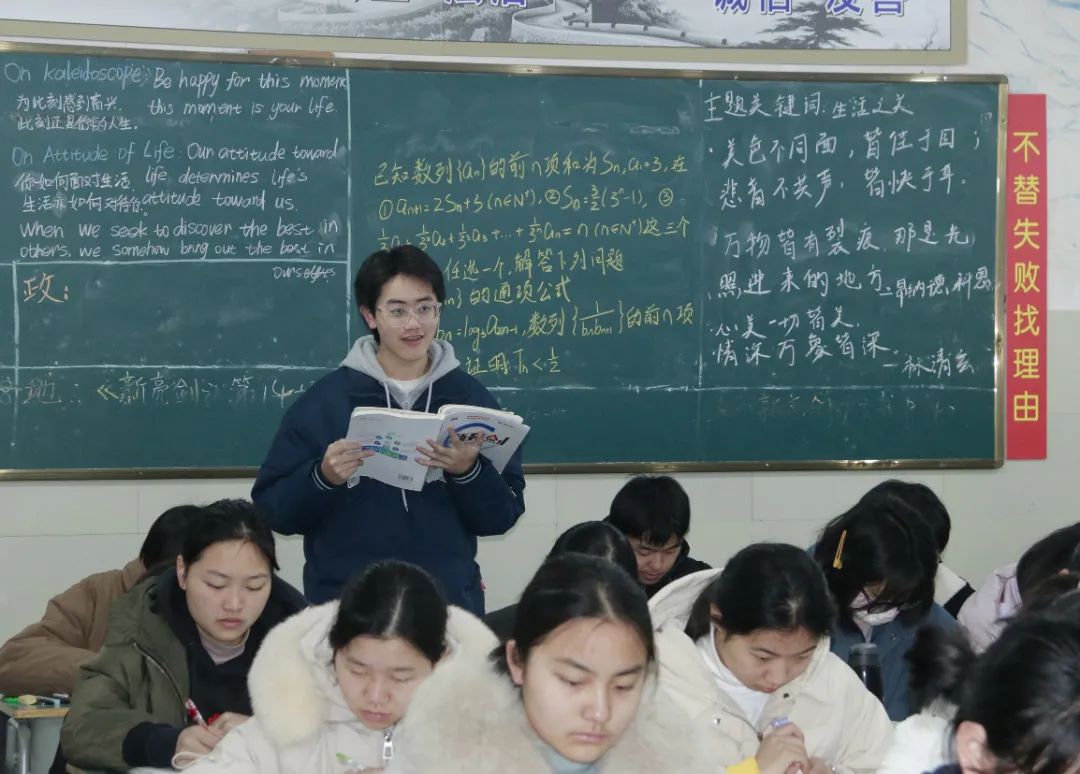 诚信 友善
On kaleidoscope: Be happy for this moment
为此刻感到高兴.
this moment is your life
此刻正是你的人生.
On Attitude of Life: Our attitude toward
你如何面对生活
life determines life's
生活亦如何对待你.
attitude toward us.
When we seek to discover the best in
others, we somehow bring out the best in
ourselves
政:
地: 《新亮剑》第14
已知数列{an}的前n项和为Sn, a1=3, 在
① an+1=2Sn+3 (n∈N*), ② Sn=3/2(3^n-1), ③
a2+ a3+…+ an=n (n∈N*)这三个
任选一个, 解答下列问题
的通项公式
bn=log3a2n-1, 数列{1/bnbn+1}的前n项
证明Tn<1/2
主题关键词: 生活之美
·美色不同面, 皆佳于目;
悲音不共声, 皆快于耳.
·万物皆有裂痕, 那是光
照进来的地方 —莱纳德·科恩
·心美一切皆美,
情深万象皆深 —林清玄
不替失败找理由